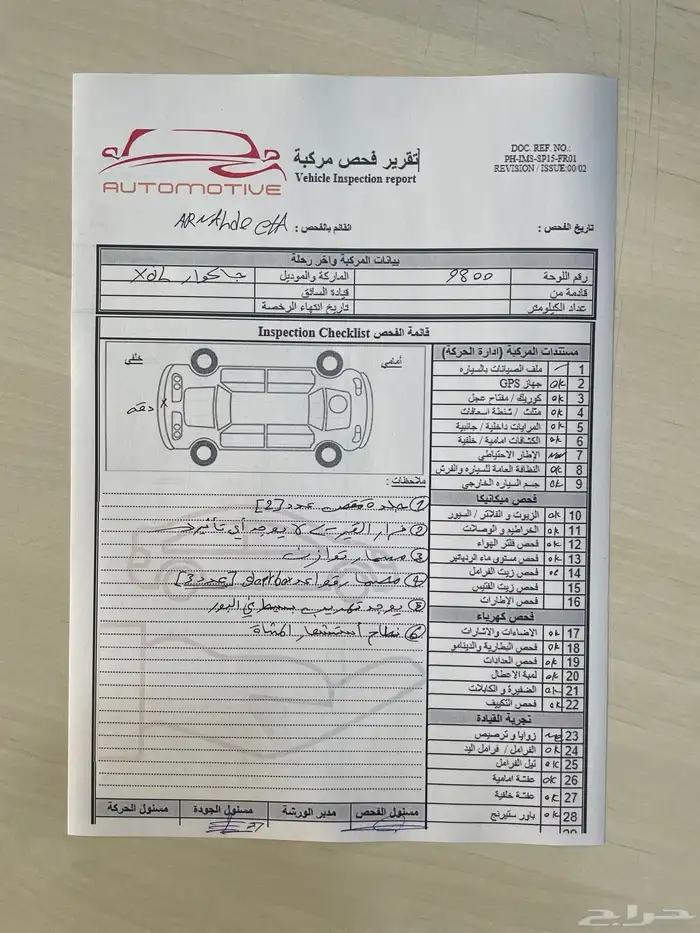 تقرير فحص مركبة
Vehicle Inspection report
AUTOMOTIVE
DOC. REF. NO.:
PH-IM3-SP15-FR01
REVISION / ISSUE:00/02
تاريخ الفحص :
القائم بالفحص :
بيانات المركبة واخر رحلة
رقم اللوحة 9800 الماركة والموديل جاكوار XJL
قادمة من قيادة السائق
عداد الكيلومتر تاريخ انتهاء الرخصة
قائمة الفحص Inspection Checklist
أمامي
خلفي
دقه X
ملاحظات :
② فرار القير > لا يوجد أي تأثير
③ مسمار توازن
④ gearbox [عدد 3]
⑤ يوجد تهريب بسيط في البور
⑥ أستشعار
مستندات المركبة (إدارة الحركة)
1 ملف الصيانات بالسياره
2 OK جهاز GPS
3 OK كوريك / مفتاح عجل
4 OK مثلث / شنطة اسعافات
5 OK المرايات داخلية / جانبية
6 OK الكشافات امامية / خلفية
7 الإطار الاحتياطي
8 OK النظافة العامة للسياره والفرش
9 OK جسم السياره الخارجي
فحص ميكانيكا
10 OK الزيوت و الفلاتر / السيور
11 OK الخراطيم و الوصلات
12 OK فحص فلتر الهواء
13 OK فحص مستوي ماء الردياتير
14 OK فحص زيت الفرامل
15 فحص زيت الفتيس
16 فحص الإطارات
فحص كهرباء
17 OK الاضاءات والاشارات
18 OK فحص البطارية والدينامو
19 OK فحص العدادات
20 OK لمبة الاعطال
21 OK الضفيرة و الكابلات
22 OK فحص التكييف
تجربة القيادة
23 زوايا و ترصيص
24 OK الفرامل / فرامل اليد
25 OK تيل الفرامل
26 OK عفشة امامية
27 OK عفشة خلفية
28 OK باور ستيرنج
29
مسئول الفحص
مدير الورشة
مسئول الجودة
مسئول الحركة
حراج